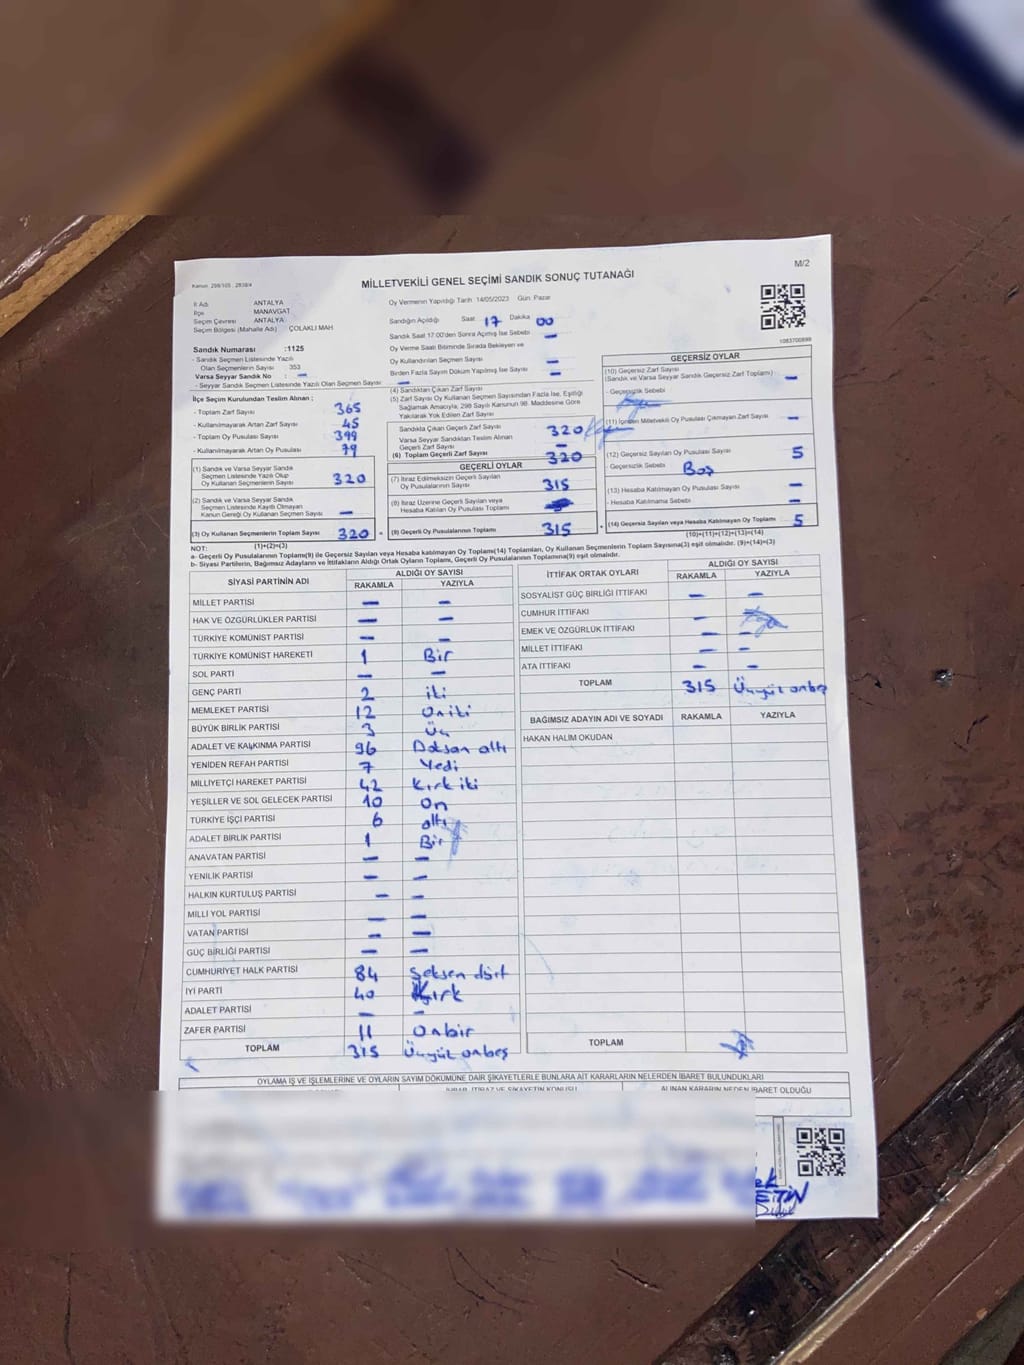 Kanun: 298/105 , 2839/4
MİLLETVEKİLİ GENEL SEÇİMİ SANDIK SONUÇ TUTANAĞI
M/2
İl Adı ANTALYA
İlçe MANAVGAT
Seçim Çevresi ANTALYA
Seçim Bölgesi (Mahalle Adı) ÇOLAKLI MAH
Sandık Numarası :1125
- Sandık Seçmen Listesinde Yazılı
Olan Seçmenlerin Sayısı : 353
Varsa Seyyar Sandık No : -
- Seyyar Sandık Seçmen Listesinde Yazılı Olan Seçmen Sayısı -
Oy Vermenin Yapıldığı Tarih 14/05/2023 Gün: Pazar
Sandığın Açıldığı Saat 17 Dakika 00
Sandık Saat 17:00'den Sonra Açılmış İse Sebebi -
Oy Verme Saati Bitiminde Sırada Bekleyen ve
Oy Kullandırılan Seçmen Sayısı -
Birden Fazla Sayım Döküm Yapılmış İse Sayısı -
1083700899
İlçe Seçim Kurulundan Teslim Alınan :
- Toplam Zarf Sayısı 365
- Kullanılmayarak Artan Zarf Sayısı 45
- Toplam Oy Pusulası Sayısı 399
- Kullanılmayarak Artan Oy Pusulası 79
(1) Sandık ve Varsa Seyyar Sandık
Seçmen Listesinde Yazılı Olup
Oy Kullanan Seçmenlerin Sayısı 320
(2) Sandık ve Varsa Seyyar Sandık
Seçmen Listesinde Kayıtlı Olmayan
Kanun Gereği Oy Kullanan Seçmen Sayısı -
(3) Oy Kullanan Seçmenlerin Toplam Sayısı 320 =
(1)+(2)=(3)
(4) Sandıktan Çıkan Zarf Sayısı
(5) Zarf Sayısı Oy Kullanan Seçmen Sayısından Fazla İse, Eşitliği
Sağlamak Amacıyla, 298 Sayılı Kanunun 98. Maddesine Göre
Yakılarak Yok Edilen Zarf Sayısı
Sandıkta Çıkan Geçerli Zarf Sayısı 320
Varsa Seyyar Sandıktan Teslim Alınan
Geçerli Zarf Sayısı -
(6) Toplam Geçerli Zarf Sayısı 320
GEÇERLİ OYLAR
(7) İtiraz Edilmeksizin Geçerli Sayılan
Oy Pusulalarının Sayısı 315
(8) İtiraz Üzerine Geçerli Sayılan veya
Hesaba Katılan Oy Pusulası Toplamı
(9) Geçerli Oy Pusulalarının Toplamı 315 +
GEÇERSİZ OYLAR
(10) Geçersiz Zarf Sayısı
(Sandık ve Varsa Seyyar Sandık Geçersiz Zarf Toplamı) -
- Geçersizlik Sebebi
(11) İçinden Milletvekili Oy Pusulası Çıkmayan Zarf Sayısı -
(12) Geçersiz Sayılan Oy Pusulası Sayısı 5
- Geçersizlik Sebebi Boş
(13) Hesaba Katılmayan Oy Pusulası Sayısı -
- Hesaba Katılmama Sebebi -
(14) Geçersiz Sayılan veya Hesaba Katılmayan Oy Toplamı 5
(10)+(11)+(12)+(13)=(14)
NOT:
a- Geçerli Oy Pusulalarının Toplamı(9) ile Geçersiz Sayılan veya Hesaba Katılmayan Oy Toplamı(14) Toplamları, Oy Kullanan Seçmenlerin Toplam Sayısına(3) eşit olmalıdır. (9)+(14)=(3)
b- Siyasi Partilerin, Bağımsız Adayların ve İttifakların Aldığı Ortak Oyların Toplamı, Geçerli Oy Pusulalarının Toplamına(9) eşit olmalıdır.
SİYASİ PARTİNİN ADI ALDIĞI OY SAYISI
RAKAMLA YAZIYLA
MİLLET PARTİSİ - -
HAK VE ÖZGÜRLÜKLER PARTİSİ - -
TÜRKİYE KOMÜNİST PARTİSİ - -
TÜRKİYE KOMÜNİST HAREKETİ 1 Bir
SOL PARTİ - -
GENÇ PARTİ 2 iki
MEMLEKET PARTİSİ 12 Oniki
BÜYÜK BİRLİK PARTİSİ 3 Üç
ADALET VE KALKINMA PARTİSİ 96 Doksan altı
YENİDEN REFAH PARTİSİ 7 Yedi
MİLLİYETÇİ HAREKET PARTİSİ 42 Kırk iki
YEŞİLLER VE SOL GELECEK PARTİSİ 10 On
TÜRKİYE İŞÇİ PARTİSİ 6 altı
ADALET BİRLİK PARTİSİ 1 Bir
ANAVATAN PARTİSİ - -
YENİLİK PARTİSİ - -
HALKIN KURTULUŞ PARTİSİ - -
MİLLİ YOL PARTİSİ - -
VATAN PARTİSİ - -
GÜÇ BİRLİĞİ PARTİSİ - -
CUMHURİYET HALK PARTİSİ 84 Seksen dört
İYİ PARTİ 40 Kırk
ADALET PARTİSİ - -
ZAFER PARTİSİ 11 Onbir
TOPLAM 315 Üçyüz onbeş
İTTİFAK ORTAK OYLARI ALDIĞI OY SAYISI
RAKAMLA YAZIYLA
SOSYALİST GÜÇ BİRLİĞİ İTTİFAKI - -
CUMHUR İTTİFAKI -
EMEK VE ÖZGÜRLÜK İTTİFAKI - -
MİLLET İTTİFAKI - -
ATA İTTİFAKI - -
TOPLAM 315 Üçyüz onbeş
BAĞIMSIZ ADAYIN ADI VE SOYADI RAKAMLA YAZIYLA
HAKAN HALİM OKUDAN
TOPLAM
OYLAMA İŞ VE İŞLEMLERİNE VE OYLARIN SAYIM DÖKÜMÜNE DAİR ŞİKAYETLERLE BUNLARA AİT KARARLARIN NELERDEN İBARET BULUNDUKLARI
İHBAR, İTİRAZ VE ŞİKAYETİN KONUSU ALINAN KARARIN NEDEN İBARET OLDUĞU